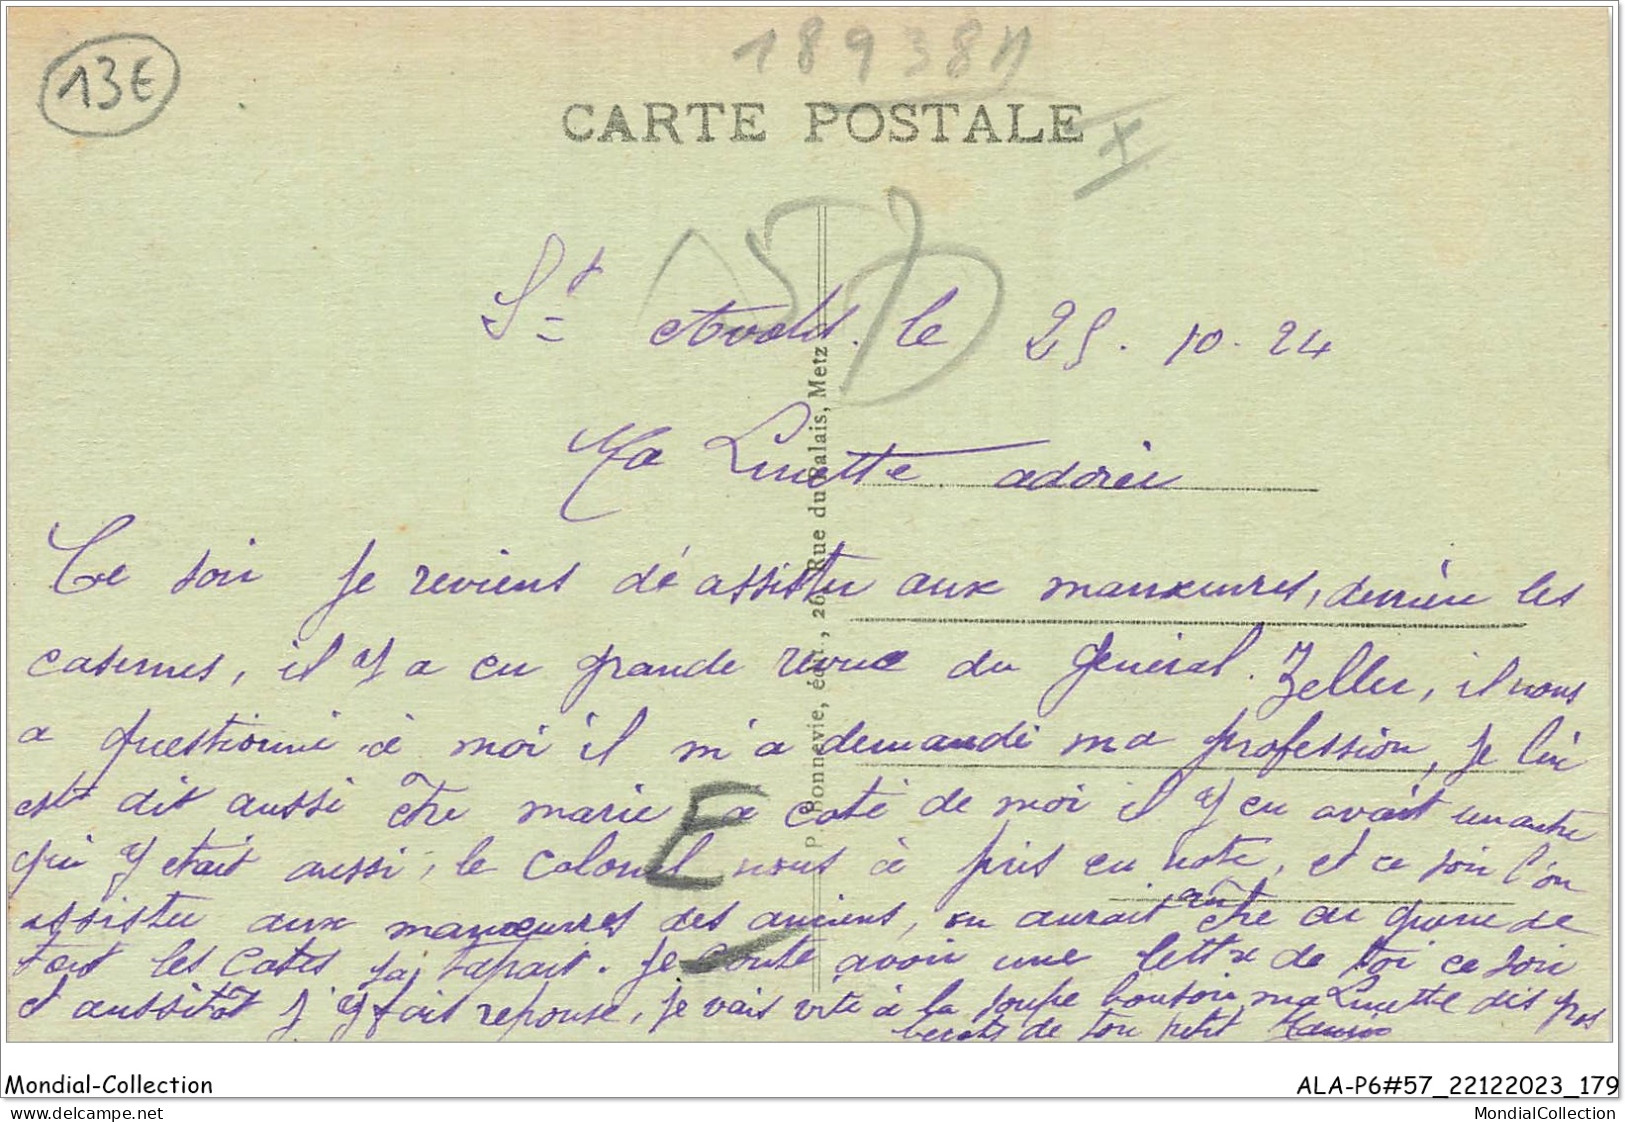 13E
18938N
CARTE POSTALE
P. Bonnevie, édit., 26, Rue du Palais, Metz
St Avold. le 25. 10. 24
Ma Linette adorée
Ce soir je reviens dé assister aux manœuvres, derrière les
casernes, il y a eu grande revue du général Zeller, il nous
a questionné à moi il m'a demandé ma profession, je lui
est dit aussi être marié a coté de moi il y en avait un autre
qui y était aussi, le colonel nous à pris en note, et ce soir l'on
assister aux manœuvres des anciens, on aurait cru être en guerre de
tout les cotés sa tapait. je conte avoir une lettre de toi ce soir
et aussitot j'y fait reponse, je vais vite à la soupe bonsoir ma Linette dis gros
de ton petit
E
Mondial-Collection
ALA-P6#57_22122023_179
delcampe.net
MondialCollection